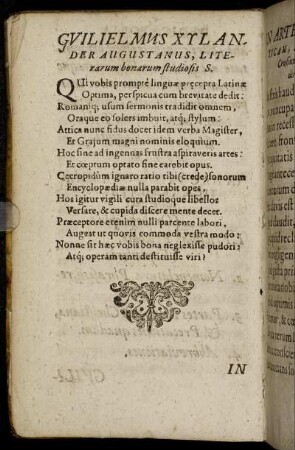 GVILIELMUS XYLAN-
DER AUGUSTANUS, LITE-
rarum bonarum studiosis S.
QUi vobis promptè linguæ præcepta Latinæ
Optima, perspicua cum brevitate dedit:
Romaniq; usum sermonis tradidit omnem,
Oraque eo solers imbuit, atq; stylum:
Attica nunc fidus docet idem verba Magister,
Et Grajum magni nominis eloquium.
Hoc sine ad ingenuas frustra aspiraveris artes:
Et cœptum optato fine carebit opus.
Cecropidûm ignaro ratio tibi (crede) sonorum
Encyclopædiæ nulla parabit opes.
Hos igitur vigili cura studioque libellos
Versare, & cupida discere mente decet.
Præceptore etenim nulli parcente labori,
Augeat ut quovis commoda vestra modo:
Nonne sit hæc vobis bona neglexisse pudori?
Atq; operam tanti destituisse viri?
IN